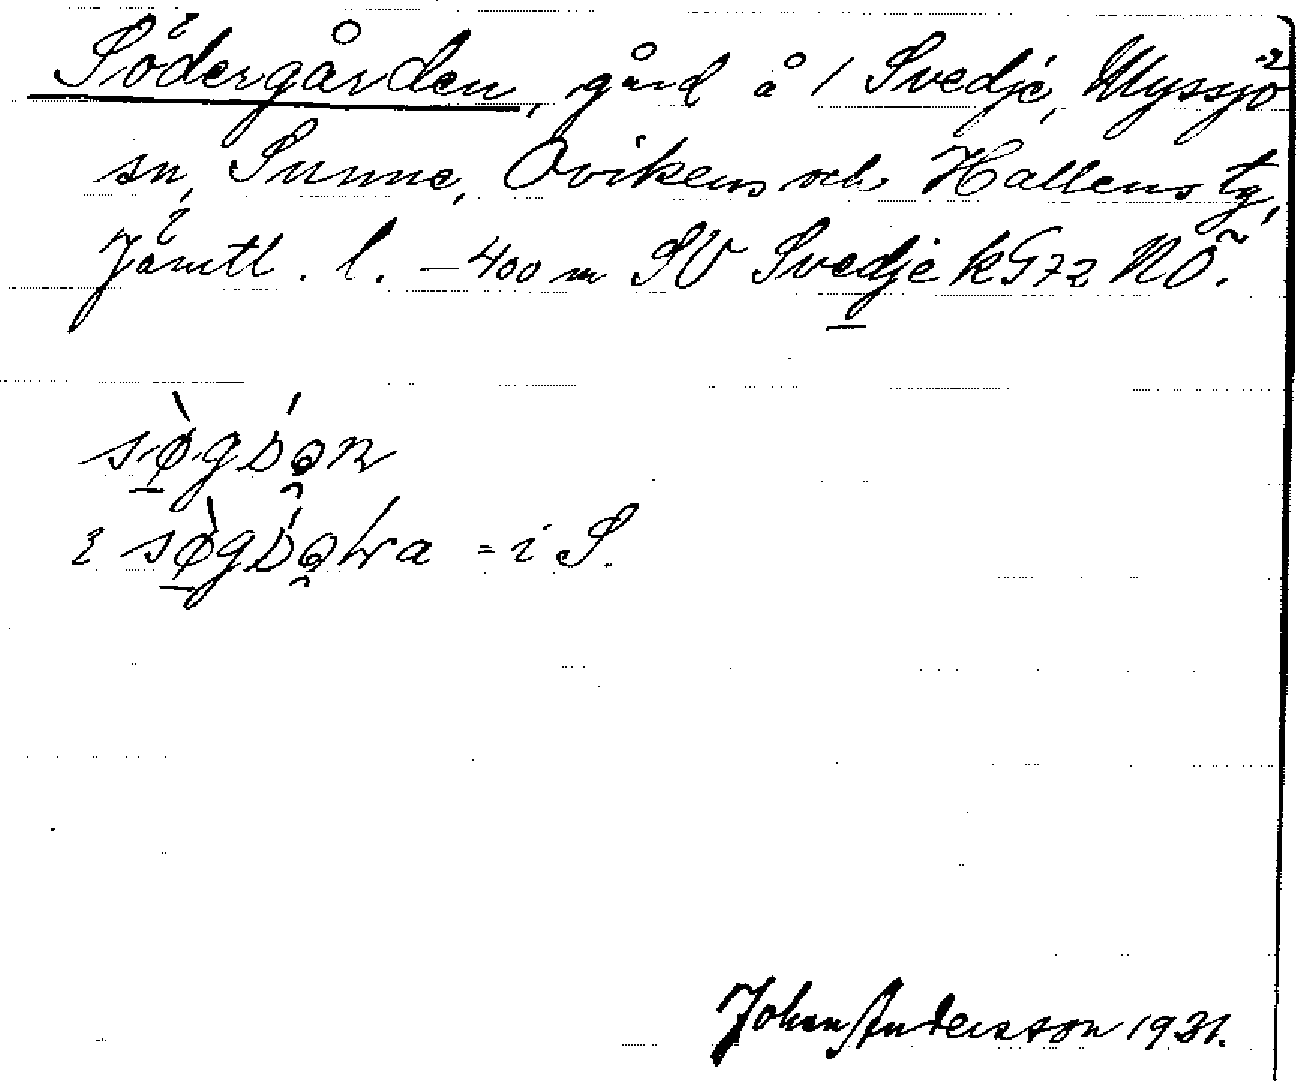 Södergården, gård å 1 Svedje, Myssjö
sn, Sunne, Ovikens och Hallens tg,
Jämtl. l. – 400 m SV Svedje k 972 NÖ.
= i S.
Johan Andersson 1931.